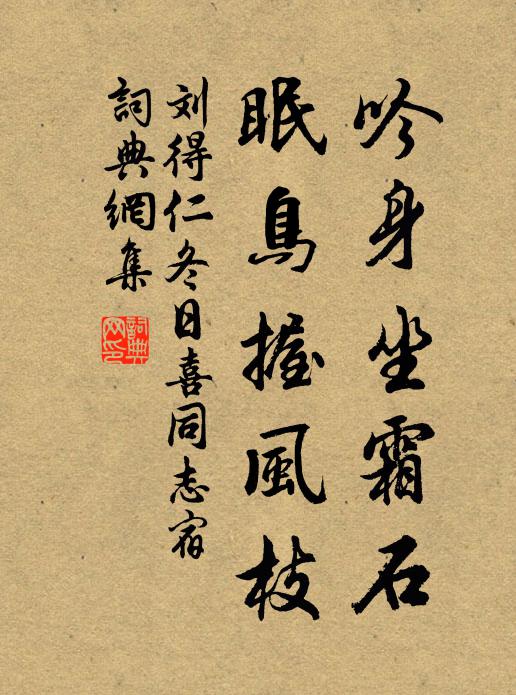 吟身坐霜石
眠鳥握風枝
刘得仁冬日喜同志宿
詞典網集
詞典网印